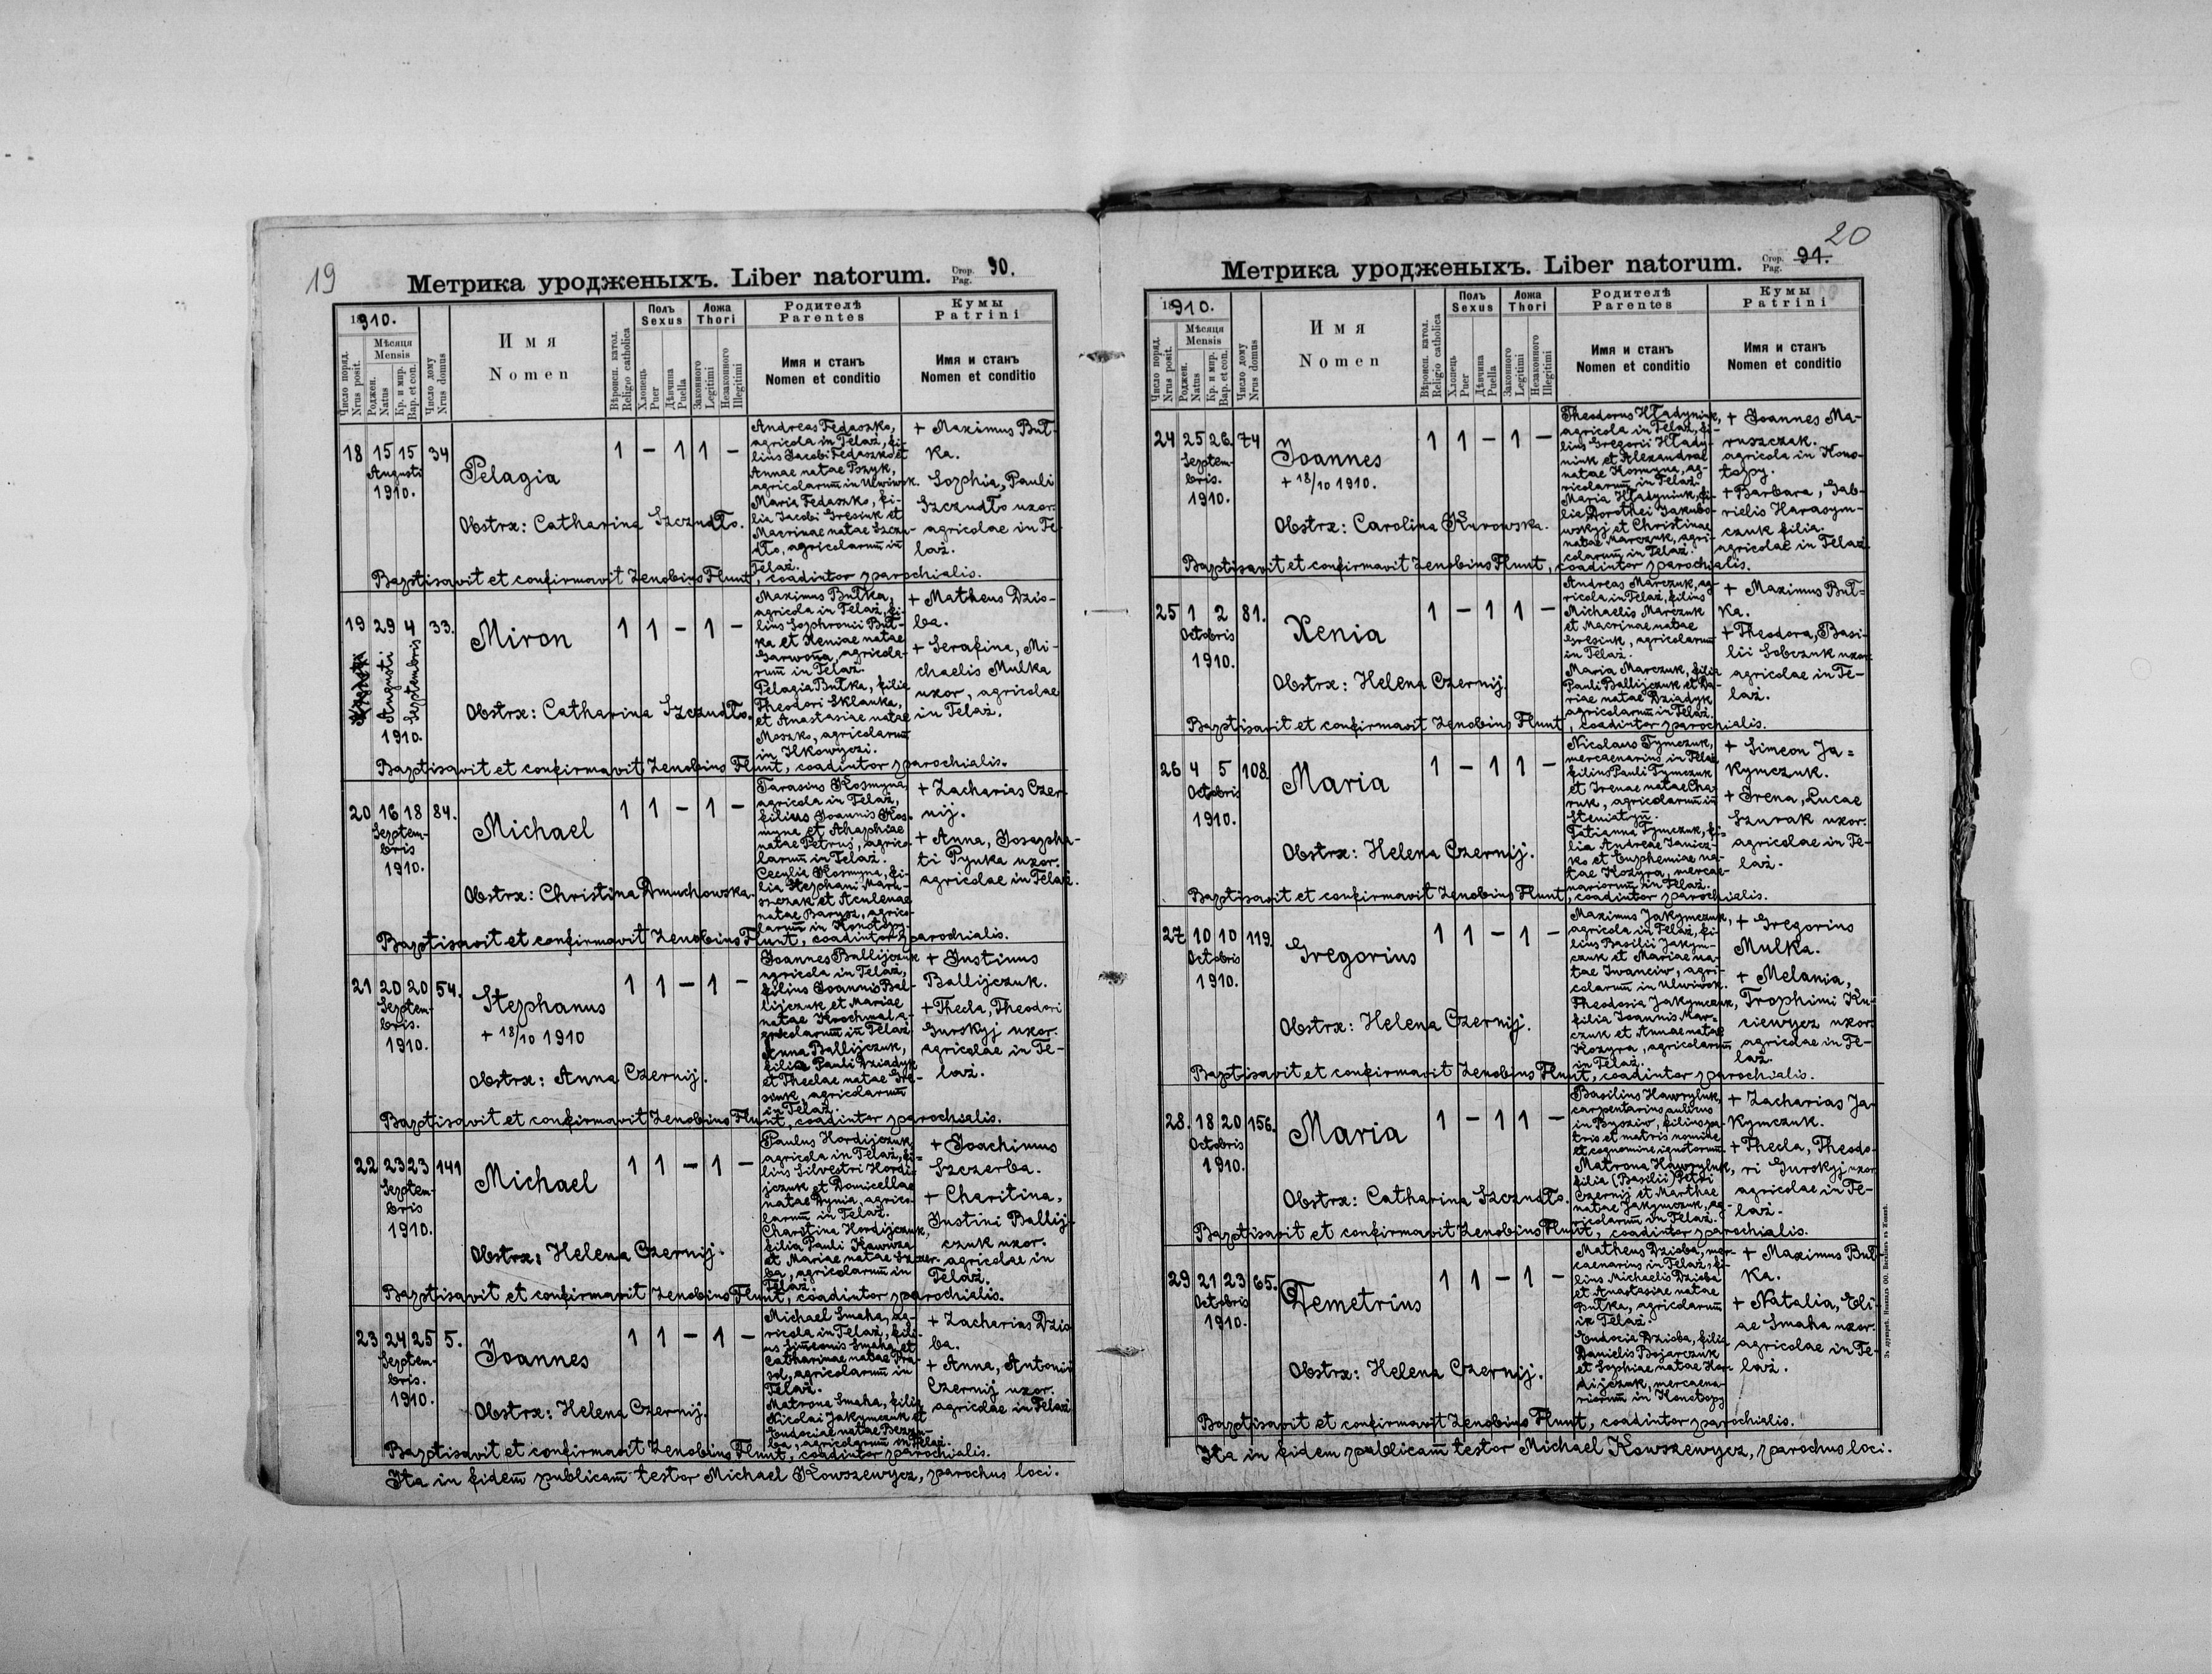 19
Метрика уродженыхъ. Liber natorum. Стор. Pag. 90.
1910.
Число поряд. Nrus posit.
Мѣсяця Mensis
Роджен. Natus
Кр. и мир. Bap. et con.
Число дому Nrus domus
Имя
Nomen
Вѣроисп. катол. Religio catholica
Полъ Sexus
Хлопець Puer
Дѣвчина Puella
Ложа Thori
Законного Legitimi
Незаконного Illegitimi
Родителѣ
Parentes
Имя и станъ
Nomen et conditio
Кумы
Patrini
Имя и станъ
Nomen et conditio
18 15 15 34
Augusti
1910.
Pelagia
1 – 1 1 –
Obstrx: Catharina Szczudło.
Andreas Fedaszko,
agricola in Telaż, fi-
lius Jacobi Fedaszko et
Annae natae Pszyk,
agricolarum in Ulwiwok.
Maria Fedaszko, fi-
lia Jacobi Gresiuk et
Macrinae natae Szczu-
dło, agricolarum in
Telaż.
+ Maximus But-
ka.
Sophia, Pauli
Szczudło uxor.
agricolae in Te-
laż.
Baptisavit et confirmavit Zenobius Flunt, coadiutor parochialis.
19 29 4 33.
Augusti
Septembris
1910.
Miron
1 1 – 1 –
Obstrx: Catharina Szczudło.
Maximus Butka,
agricola in Telaż, fi-
lius Sophronii But-
ka et Xeniae natae
agricola-
rum in Telaż.
Pelagia Butka, filia
Theodori Sklanka,
et Anastasiae natae
Moszko, agricolarum
in Ilkowyczi.
+ Matheus Dzio-
ba.
+ Serafina, Mi-
chaelis Mulka
uxor, agricolae
in Telaż.
Baptisavit et confirmavit Zenobius Flunt, coadiutor parochialis.
20 16 18 84.
Septem-
bris
1910.
Michael
1 1 – 1 –
Obstrx: Christina Dmuchowska.
Tarasius Kosmyna,
agricola in Telaż,
filius Joannis Kos-
myna et Ahaphiae
natae Petruś, agrico-
larum in Telaż.
Cecylia Kosmyna, fi-
lia Stephani Maru-
szczak et Aculenae
natae Barysz, agrico-
larum in Konotopy.
+ Zacharias Czer-
nij.
+ Anna, Josapha-
ti Pynka uxor.
agricolae in Telaż.
Baptisavit et confirmavit Zenobius Flunt, coadiutor parochialis.
21 20 20 54.
Septem-
bris.
1910.
Stephanus
+ 18/10 1910
1 1 – 1 –
Obstrx: Anna Czernij.
Joannes Ballijczuk
agricola in Telaż,
filius Joannis Bal-
lijczuk et Mariae
natae Krochmal a-
gricolarum in Telaż
Anna Ballijczuk,
filia Pauli Dziadyk
et Theclae natae Gre-
siuk, agricolarum
in Telaż.
+ Justinus
Ballijczuk.
+ Thecla, Theodori
Gurskyj uxor.
agricolae in Te-
laż.
Baptisavit et confirmavit Zenobius Flunt, coadiutor parochialis.
22 23 23 141
Septem-
bris
1910.
Michael
1 1 – 1 –
Obstrx: Helena Czernij.
Paulus Hordijczuk,
agricola in Telaż, fi-
lius Silvestri Hordi-
jczuk et Domicellae
natae Dynia, agrico-
larum in Telaż.
Charitina Hordijczuk,
filia Pauli Kawwza
et Mariae natae Szczer-
ba, agricolarum in
Telaż.
+ Joachimus
Szczerba.
+ Charitina,
Justini Ballij-
czuk uxor.
agricolae in
Telaż.
Baptisavit et confirmavit Zenobius Flunt, coadiutor parochialis.
23 24 25 5.
Septem-
bris.
1910.
Joannes
1 1 – 1 –
Obstrx: Helena Czernij.
Michael Smaha, ag-
ricola in Telaż, fili-
us Simeonis Smaha et
Catharinae natae Pra-
sol, agricolarum in
Telaż.
Matrona Smaha, filia
Nicolai Jakymczuk et
Eudociae natae
agricolarum in Telaż.
+ Zacharias Dzio-
ba.
+ Anna, Antonii
Czernij uxor.
agricolae in Telaż
Baptisavit et confirmavit Zenobius Flunt, coadiutor parochialis.
Ita in fidem publicam testor Michael Kowszewycz, parochus loci.
20
Метрика уродженыхъ. Liber natorum. Стор. Pag. 91.
1910.
Число поряд. Nrus posit.
Мѣсяця Mensis
Роджен. Natus
Кр. и мир. Bap. et con.
Число дому Nrus domus
Имя
Nomen
Вѣроисп. катол. Religio catholica
Полъ Sexus
Хлопець Puer
Дѣвчина Puella
Ложа Thori
Законного Legitimi
Незаконного Illegitimi
Родителѣ
Parentes
Имя и станъ
Nomen et conditio
Кумы
Patrini
Имя и станъ
Nomen et conditio
24 25 26. 74
Septem-
bris.
1910.
Joannes
+ 18/10 1910.
1 1 – 1 –
Obstrx: Carolina Kurowska.
Theodorus Hładyniuk,
agricola in Telaż, fi-
lius Gregorii Hłady-
niuk et Alexandrae
natae Kosmyna, ag-
ricolarum in Telaż.
Maria Hładyniuk, fi-
lia Dorothei Jakubo-
wskyj et Christinae
natae Marczuk, agri-
colarum in Telaż.
+ Joannes Ma-
ruszczak.
agricola in Kono-
topy.
+ Barbara, Gab-
rielis Harasym-
czuk filia.
agricolae in Telaż
Baptisavit et confirmavit Zenobius Flunt, coadiutor parochialis.
25 1 2 81.
Octobris
1910.
Xenia
1 – 1 1 –
Obstrx: Helena Czernij.
Andreas Marczuk, ag-
ricola in Telaż, filius
Michaelis Marczuk
et Macrinae natae
Gresiuk, agricolarum
in Telaż.
Maria Marczuk, filia
Pauli Ballijczuk et Da-
riae natae Dziadyk
agricolarum in Telaż.
+ Maximus But-
ka.
+ Theodora, Basi-
lii Sobczuk uxor.
agricolae in Te-
laż.
Baptisavit et confirmavit Zenobius Flunt, coadiutor parochialis.
26 4 5 108.
Octobris
1910.
Maria
1 – 1 1 –
Obstrx: Helena Czernij.
Nicolaus Tymczuk,
mercaenarius in Telaż
filius Pauli Tymczuk
et Irenae natae Cha-
ruk, agricolarum in
Steniatyn.
Tatianna Tymczuk, fi-
lia Andreae Janicz-
ko et Euphemiae na-
tae Kozyra, mercae-
nariorum in Telaż.
+ Simeon Ja-
kymczuk.
+ Irena, Lucae
Szurak uxor.
agricolae in Te-
laż.
Baptisavit et confirmavit Zenobius Flunt, coadiutor parochialis.
27 10 10 119.
Octobris
1910.
Gregorius
1 1 – 1 –
Obstrx: Helena Czernij.
Maximus Jakymczuk,
agricola in Telaż, fi-
lius Basilii Jakym-
czuk et Mariae na-
tae Iwanciw, agri-
colarum in Ulwiwok.
Theodosia Jakymczuk,
filia Joannis Mar-
czuk et Annae natae
Kozyra, agricolarum
in Telaż.
+ Gregorius
Mulka.
+ Melania,
Trophimi Ku-
ciewycz uxor.
agricolae in Te-
laż.
Baptisavit et confirmavit Zenobius Flunt, coadiutor parochialis.
28. 18 20 156.
Octobris
1910.
Maria
1 – 1 1 –
Obstrx: Catharina Szczudło.
Basilius Hawryluk,
carpentarius aulicus
in Bysziw, filius pa-
tris et matris nomine
et cognomine ignotorum.
Matrona Hawryluk,
filia (Basilii) Petri
Czernij et Marthae
natae Jakymczuk, ag-
ricolarum in Telaż.
+ Zacharias Ja-
kymczuk.
+ Thecla, Theodo-
ri Gurskyj uxor
agricolae in Te-
laż.
Baptisavit et confirmavit Zenobius Flunt, coadiutor parochialis.
29 21 23 65.
Octobris
1910.
Demetrius
1 1 – 1 –
Obstrx: Helena Czernij.
Matheus Dzioba, mer-
caenarius in Telaż, fi-
lius Michaelis Dzioba
et Anastasiae natae
Butka, agricolarum
in Telaż.
Eudocia Dzioba, filia
Danielis Bojarczuk
et Sophiae natae Hor-
dijczuk, mercaena-
riorum in Konotopy
+ Maximus But-
ka.
+ Natalia, Eli-
ae Smaha uxor.
agricolae in Te-
laż.
Baptisavit et confirmavit Zenobius Flunt, coadiutor parochialis.
Ita in fidem publicam testor Michael Kowszewycz, parochus loci.